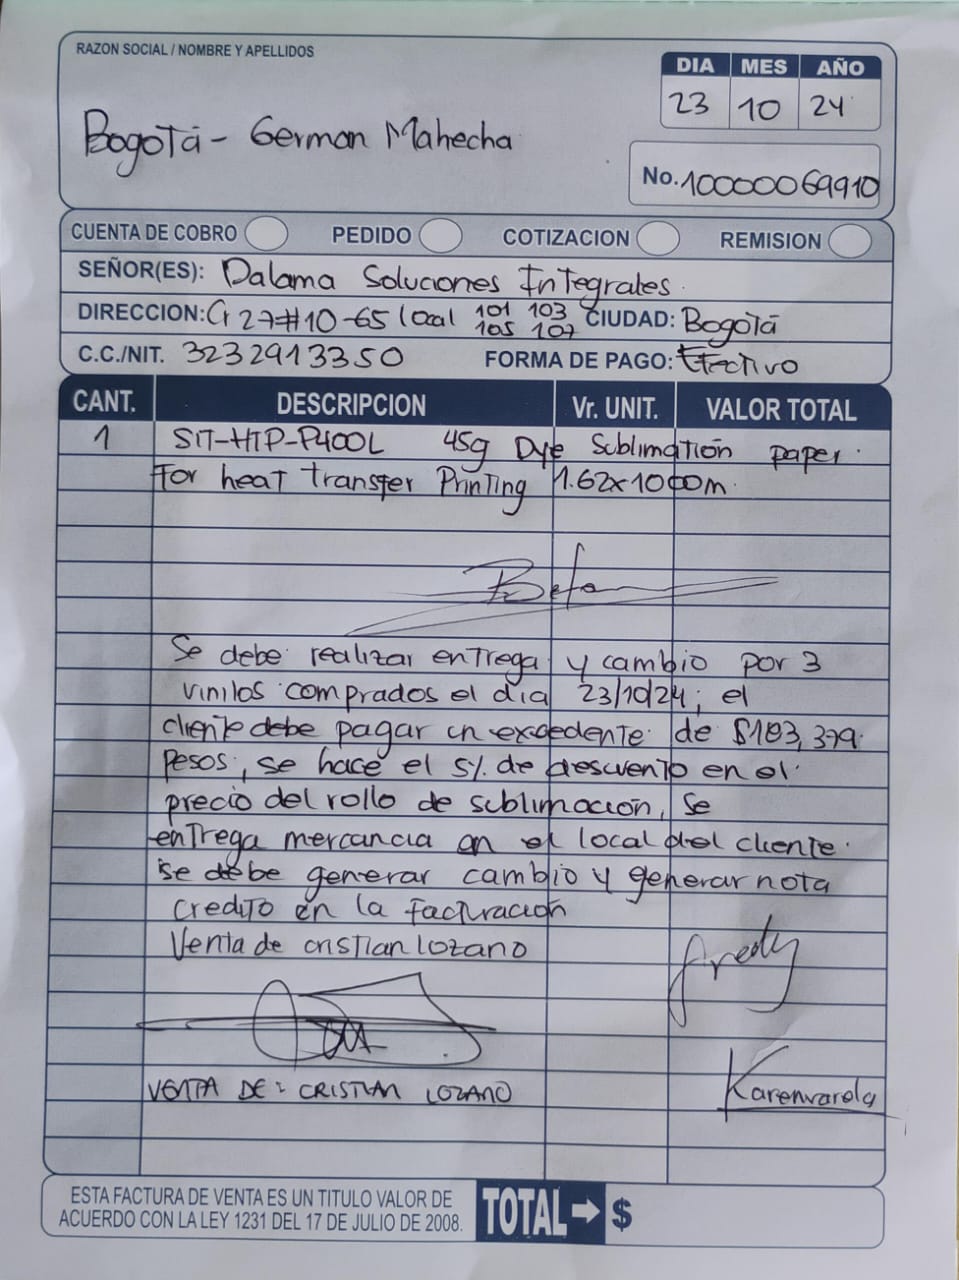 RAZON SOCIAL / NOMBRE Y APELLIDOS
DIA MES AÑO
23 10 24
Bogotá - German Mahecha
No. 10000069910
CUENTA DE COBRO PEDIDO COTIZACION REMISION
SEÑOR(ES): Dalama Soluciones Integrales.
DIRECCION: Cr 27#10-65 local 101 103 105 107 CIUDAD: Bogotá
C.C./NIT. 3232913350 FORMA DE PAGO: Efectivo
CANT. DESCRIPCION Vr. UNIT. VALOR TOTAL
1 SIT-HTP-P400L 45g Dye Sublimation paper.
For heat transfer Printing 1.62x1000m.
Se debe realizar entrega y cambio por 3
vinilos comprados el dia 23/10/24; el
cliente debe pagar un excedente de $183,379
Pesos, se hace el 5% de descuento en el
precio del rollo de sublimación, se
entrega mercancia en el local del cliente.
se debe generar cambio y generar nota
credito en la facturación
Venta de cristian lozano
Fredy
VENTA DE: CRISTIAN LOZANO
Karenvarela
ESTA FACTURA DE VENTA ES UN TITULO VALOR DE
ACUERDO CON LA LEY 1231 DEL 17 DE JULIO DE 2008.
TOTAL → $